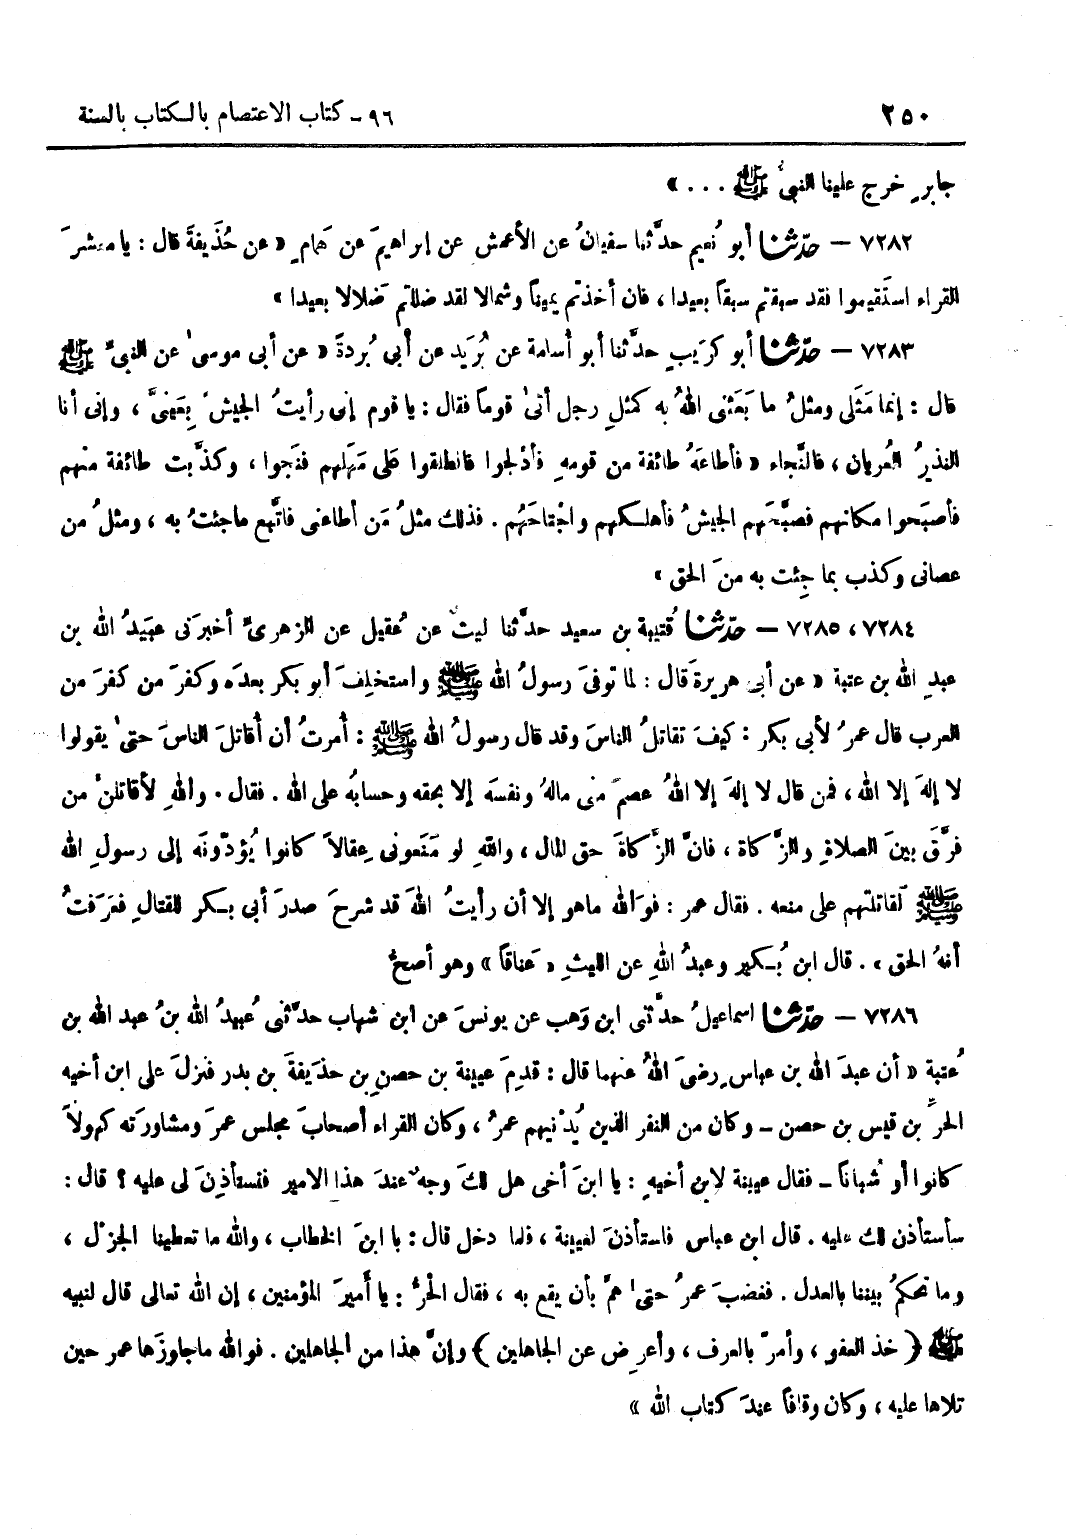 ٢٥٠
٩٦ - كتاب الاعتصام بالكتاب بالسنة
جابرٍ خرج علينا النبيُّ ﷺ ... »
٧٢٨٢ — حدّثنا أبو نُعيم حدَّثنا سفيانُ عن الأعمش عن إبراهيمَ عن هَمامٍ « عن حُذَيفةَ قال : يا معشرَ
القراء استَقيموا فقد سبقتم سبقاً بعيدا ، فان أخذتم يميناً وشمالا لقد ضللتم ضَلالا بعيدا »
٧٢٨٣ — حدّثنا أبو كرَيبٍ حدَّثنا أبو أسامة عن بُرَيد عن أبي بُردةَ « عن أبى موسىٰ عن النبىِّ ﷺ
قال : إنما مَثَلى ومثلُ ما بَعَثنى اللهُ به كمثلِ رجل أتىٰ قوماً فقال : يا قوم إنى رأيتُ الجيشَ بِعَينىَّ ، وإنى أنا
النذيرُ العُريان ، فالنَّجاء « فأطاعَهُ طائفة من قومهِ فأدْلجوا فانطلقوا على مَهَلهم فنَجوا ، وكذَّبت طائفة منهم
فأصبَحوا مكانهم فصبَّحَهم الجيشُ فأهلكهم واجْتاحَهُم . فذلك مثلُ مَن أطاعنى فاتَّبع ماجئتُ به ، ومثلُ من
عصانى وكذب بما جِئت به منَ الحق »
٧٢٨٤ ، ٧٢٨٥ — حدّثنا قُتيبة بن سعيد حدَّثنا ليثٌ عن عُقيل عن الزهرىِّ أخبرَنى عبَيدُ الله بن
عبدِ الله بن عتبة « عن أبى هريرةَ قال : لما توفىَ رسولُ الله ﷺ واستخلِفَ أبو بكر بعدَه وكفرَ من كفرَ من
العرب قال عمرُ لأبى بكر : كيفَ تقاتلُ الناسَ وقد قال رسولُ الله ﷺ : أُمرتُ أن أُقاتلَ الناسَ حتىٰ يقولوا
لا إلهَ إلا الله ، فمن قال لا إلهَ إلا اللهُ عصمَ منى مالهُ ونفسَه إلا بحقه وحسابُه على الله . فقال . واللهِ لأقاتلنَّ من
فرَّقَ بينَ الصلاةِ والزَّكاة ، فانَّ الزَّكاةَ حق المال ، واللهِ لو مَنَعونى عِقالاً كانوا يُؤدّونَه إلى رسولِ الله
ﷺ لَقاتلتهم على منعه . فقال عمر : فوَالله ماهو إلا أن رأيتُ اللهَ قد شرحَ صدرَ أبى بكر للقتالِ فعَرَفتُ
أنهُ الحق » . قال ابن بُكير وعبدُ اللهِ عن الليثِ « عَناقاً » وهو أصحُّ
٧٢٨٦ — حدّثنا اسماعيلُ حدَّثنى ابن وَهب عن يونسَ عن ابن شهاب حدَّثنى عُبيدُ الله بنُ عبد الله بن
عُتبة « أن عبدَ الله بن عباسٍ رضىَ اللهُ عنهما قال : قدِمَ عيينة بن حصنِ بن حذَيفةَ بن بدر فنزلَ على ابن أخيه
الحرِّ بن قيس بن حصن – وكان من النفر الذين يُدْنيهم عمرُ ، وكان القراء أصحابَ مجلس عمرَ ومشاورَته كهولاً
كانوا أو شُباناً – فقال عيينة لابن أخيهِ : يا ابنَ أخى هل لكَ وجه عندَ هذا الامير فتستأذِنَ لى عليه ؟ قال :
سأستأذن لك عليه . قال ابن عباس فاستأذنَ لعيينة ، فلما دخل قال : يا ابنَ الخطاب ، والله ما تعطينا الجزْل ،
وما تحكمُ بيننا بالعدل . فغضبَ عمرُ حتىٰ همَّ بأن يقع به ، فقال الحرُّ : يا أميرَ المؤمنين ، إن الله تعالى قال لنبيه
ﷺ ( خذ العفو ، وأمرْ بالعرف ، وأعرِض عن الجاهلين ) وإنَّ هذا من الجاهلين . فوالله ماجاوزَها عمر حين
تلاها عليه ، وكان وقافاً عندَ كتاب الله »